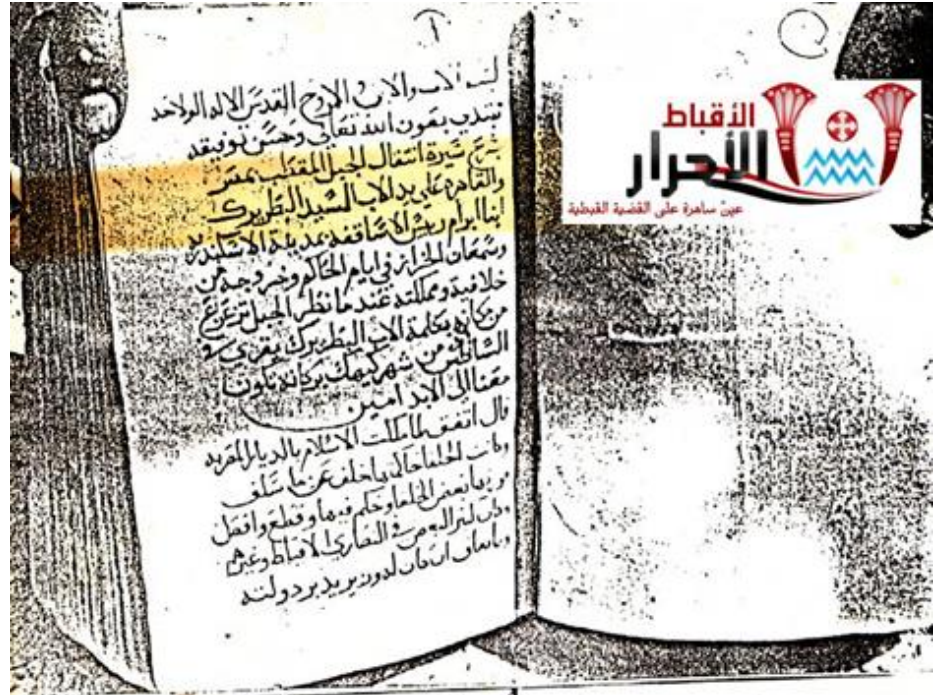 بسم الاب والابن والروح القدس الاله الواحد
نبتدي بعون الله تعالى وحسن توفيقه
بشرح سيرة انتقال الجبل المقطب بمصر
والقاهرة على يد الاب السيد البطريرك
انبا ابرام ريس الاساقفه بمدينة الاسكندريه
وسمعان الخراز في ايام الحاكم وخروجه من
خلافته ومملكته عندما نظر الجبل تزعزع
من مكانه بكلمة الاب البطريرك يقري في
السادس من شهر كيهك بركاته تكون
معنا الى الابد امين
قال اتفق لما ملكت الاسلام بالديار المصريه
وكانت الخلفا
بعض الخلفا وحكم فيها وقطع
في النصارى الاقباط وغيرهم
وزير يريد بر دولته
الأقباط
الأحرار
عينٌ ساهرة على القضية القبطية